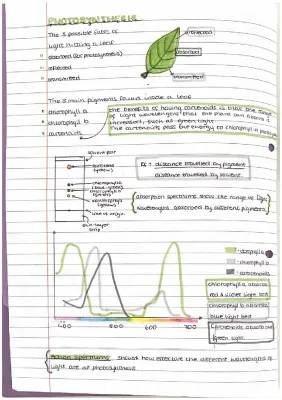 PHOTOSYNTHESIS
The 3 possible fates of
light hitting a leaf
absorbed (for photosynthesis)
reflected
transmitted
reflected
absorbed
transmitted
The 3 main pigments found inside a leaf
chlorophyll a
chlorophyll b
carotenoids
The benefits of having carotenoids is that the range
of light wavelengths that the plant can absorb is
increased, such as green light.
The carotenoids pass the energy to chlorophyll in
solvent front
carotene
chlorophyll a
chlorophyll b
line of origin
Rf = distance travelled by pigment
distance travelled by solvent
absorption spectrums show the range of light
wavelengths absorbed by different pigments
chlorophyll b
chlorophyll a
carotenoids
chlorophyll a absorbs
red & violet light best
chlorophyll b absorbs
blue light best
carotenoids absorb
green light.
400
500
600
700
Action spectrums: shows how effective the different wavelengths of
light are at photosynthesis